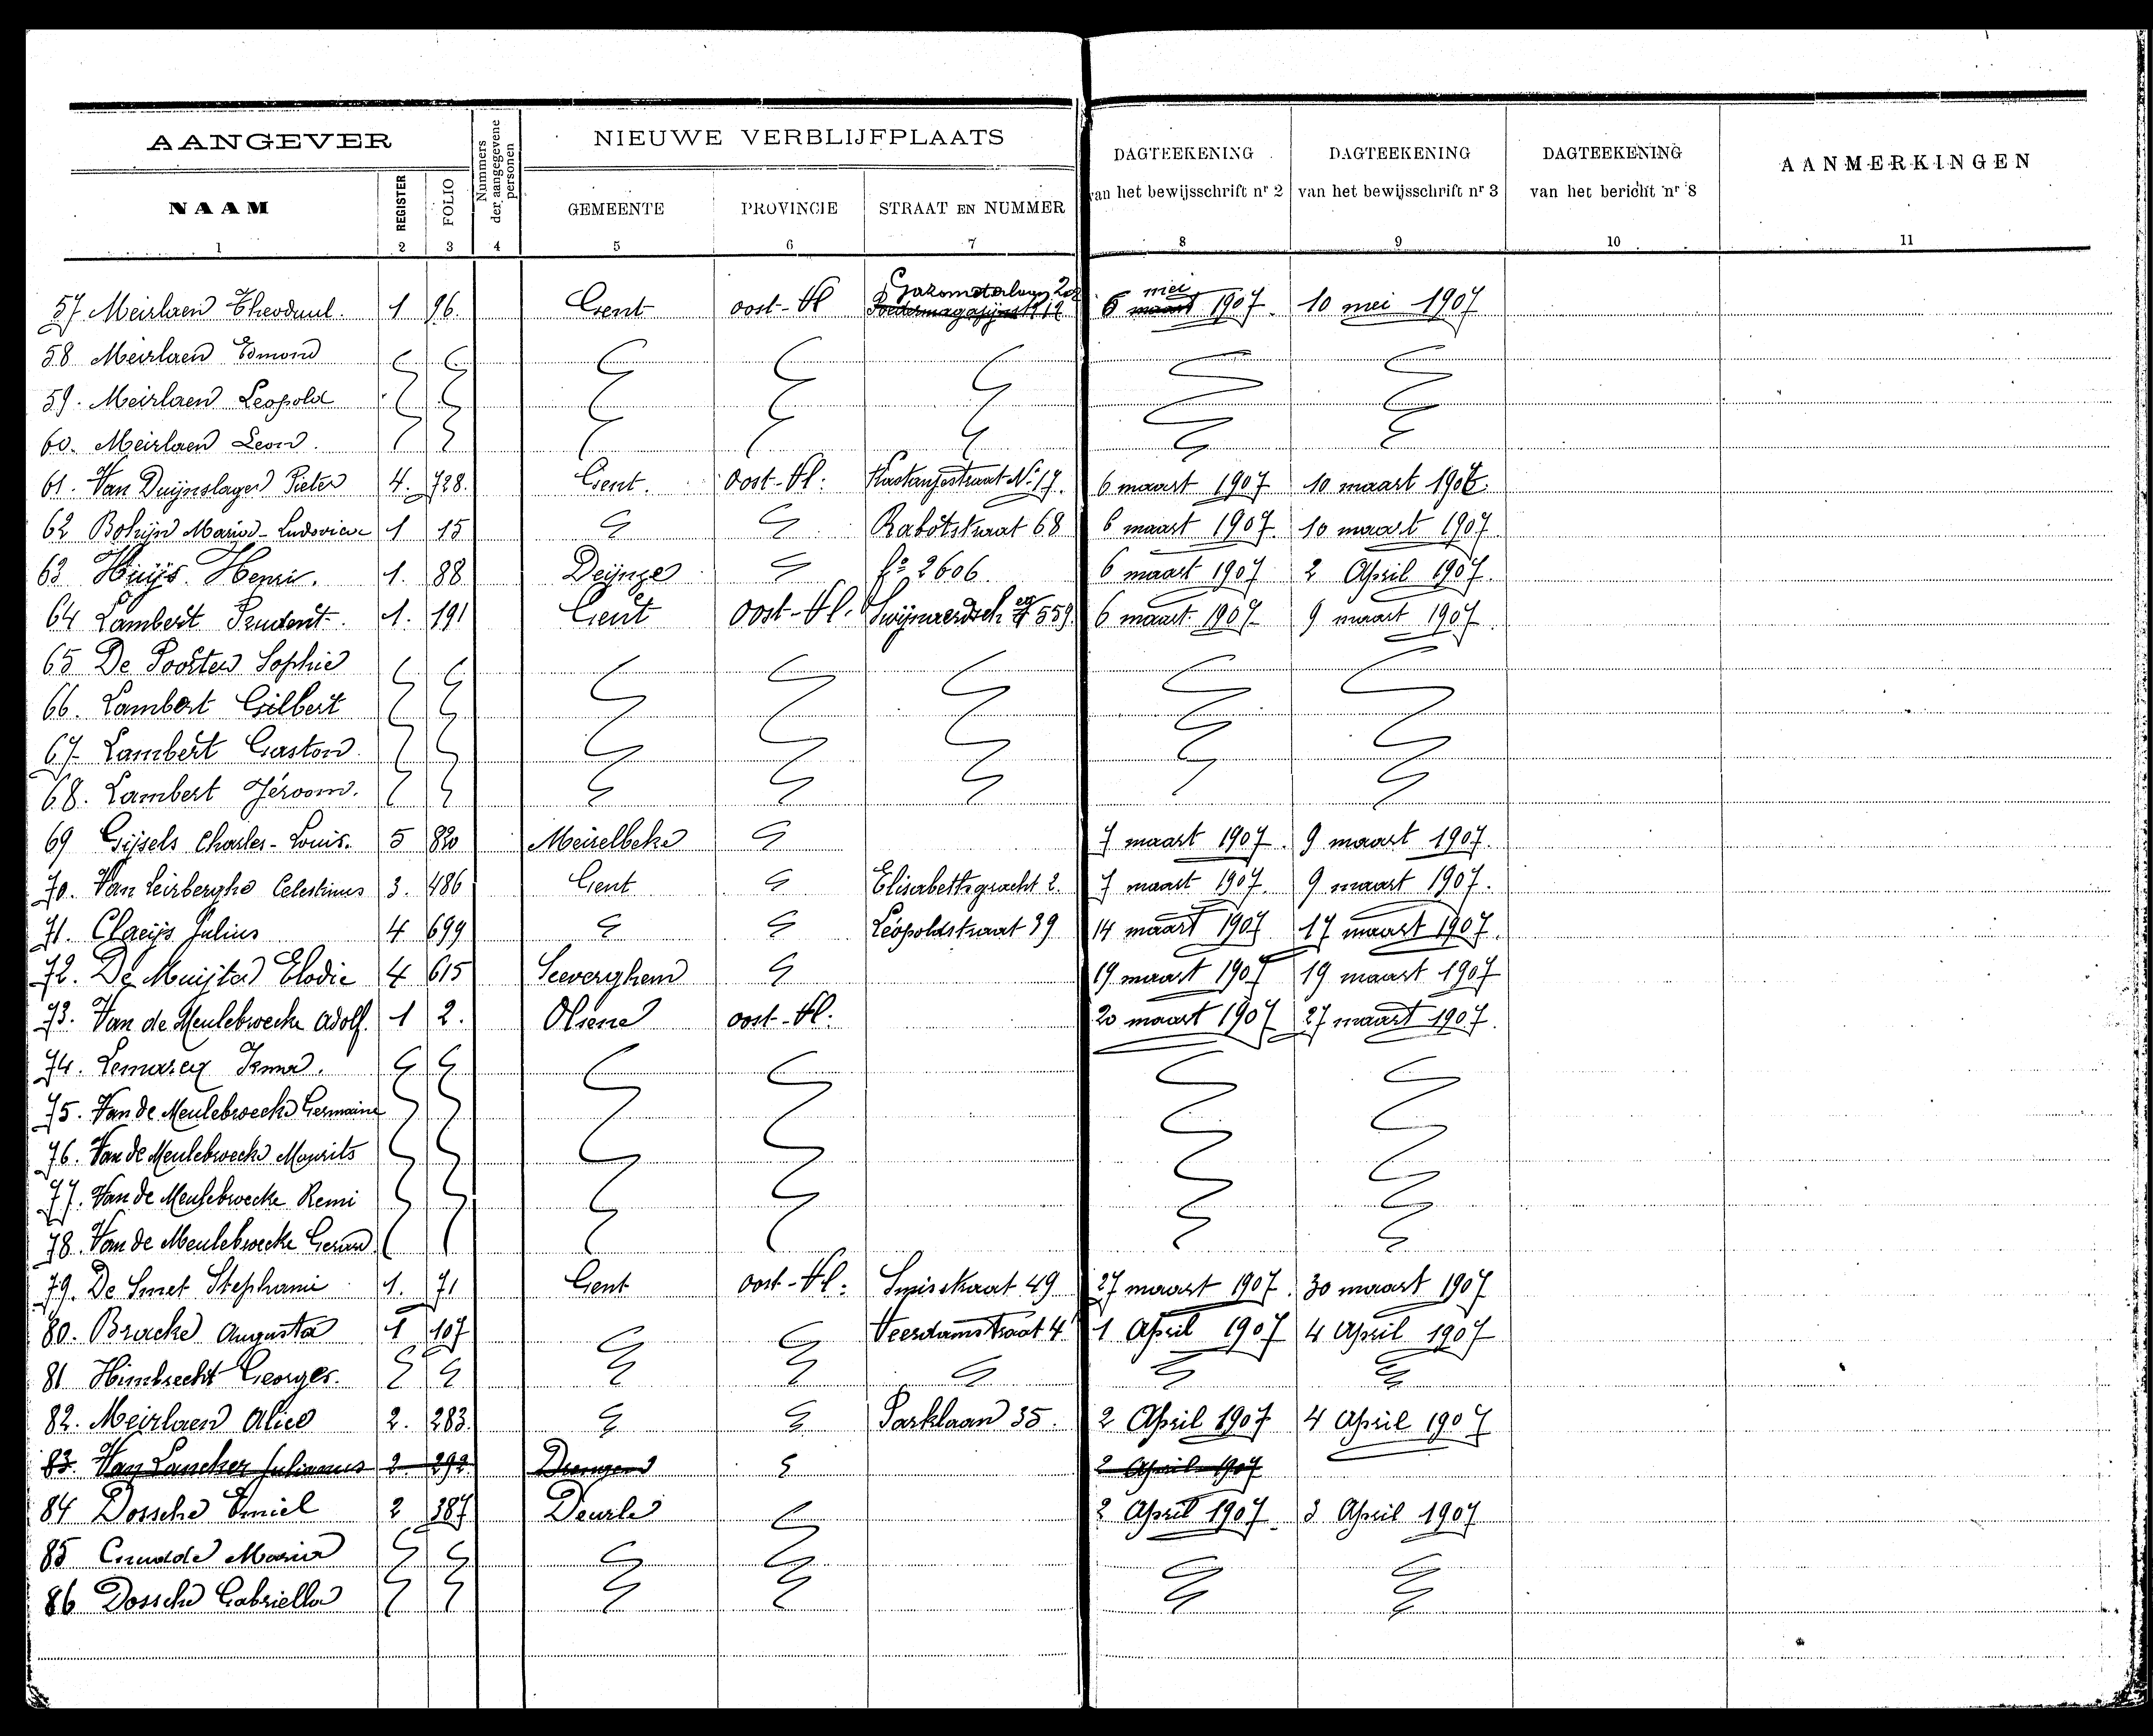 AANGEVER
Nummers der aangegevene personen
NIEUWE VERBLIJFPLAATS
DAGTEEKENING van het bewijsschrift nr 2
DAGTEEKENING van het bewijsschrift nr 3
DAGTEEKENING van het bericht nr 8
AANMERKINGEN
NAAM REGISTER FOLIO GEMEENTE PROVINCIE STRAAT EN NUMMER
1 2 3 4 5 6 7 8 9 10 11
57 Meirlaen Theoduul. 1 96. Gent oost-Vl 6 mei 1907. 10 mei 1907
58 Meirlaen Edmond
59. Meirlaen Leopold
60. Meirlaen Leon.
61. Van Duijnslager Pieter 4. 728. Gent. Oost-Vl: Kastanjestraat No 17. 6 maart 1907 10 maart 1907.
62 Bohijn Maria-Ludovica 1 15 Rabotstraat 68 6 maart 1907. 10 maart 1907
63 Huijs Henri. 1. 88 Deijnze fo 2606. 6 maart 1907 2 April 1907.
64 Lambert Prudent. 1. 191 Gent Oost-Vl. Swijnaerdsch 559. 6 maart 1907. 9 maart 1907.
65 De Poorter Sophie
66. Lambert Gilbert
67. Lambert Gaston.
68. Lambert Jéroom.
69 Gijsels Charles-Louis. 5 820 Meirelbeke 7 maart 1907. 9 maart 1907.
70. Van Leirberghe Celestinus 3. 486 Gent Elisabethgracht 2. 7 maart 1907. 9 maart 1907.
71. Claeijs Julius 4 699 Léopoldstraat 39 14 maart 1907 17 maart 1907.
72. De Muijter Elodie 4 615 Seeverghem 19 maart 1907 19 maart 1907
73. Van de Meulebroecke Adolf. 1 2. Olsene oost-Vl: 20 maart 1907 27 maart 1907.
74. Lemarcq Irma.
75. Van de Meulebroecke Germaine
76. Van de Meulebroecke Maurits
77. Van de Meulebroecke Remi
78. Van de Meulebroecke
79. De Smet Stephanie 1. 71 Gent oost-Vl: 49 27 maart 1907. 30 maart 1907
80. Bracke Augusta 1 107 Veerdamstraat 4 1 April 1907 4 April 1907
81 Himbrecht Georges.
82. Meirlaen Alice 2. 283. Parklaan 35. 2 April 1907 4 April 1907
83. Van Lancker Julianus 2. 292 Drongen 2 April 1907
84 Dossche Emiel 2 387 Deurle 2 April 1907. 3 April 1907
85 Crudde Maria
86 Dossche Gabriella